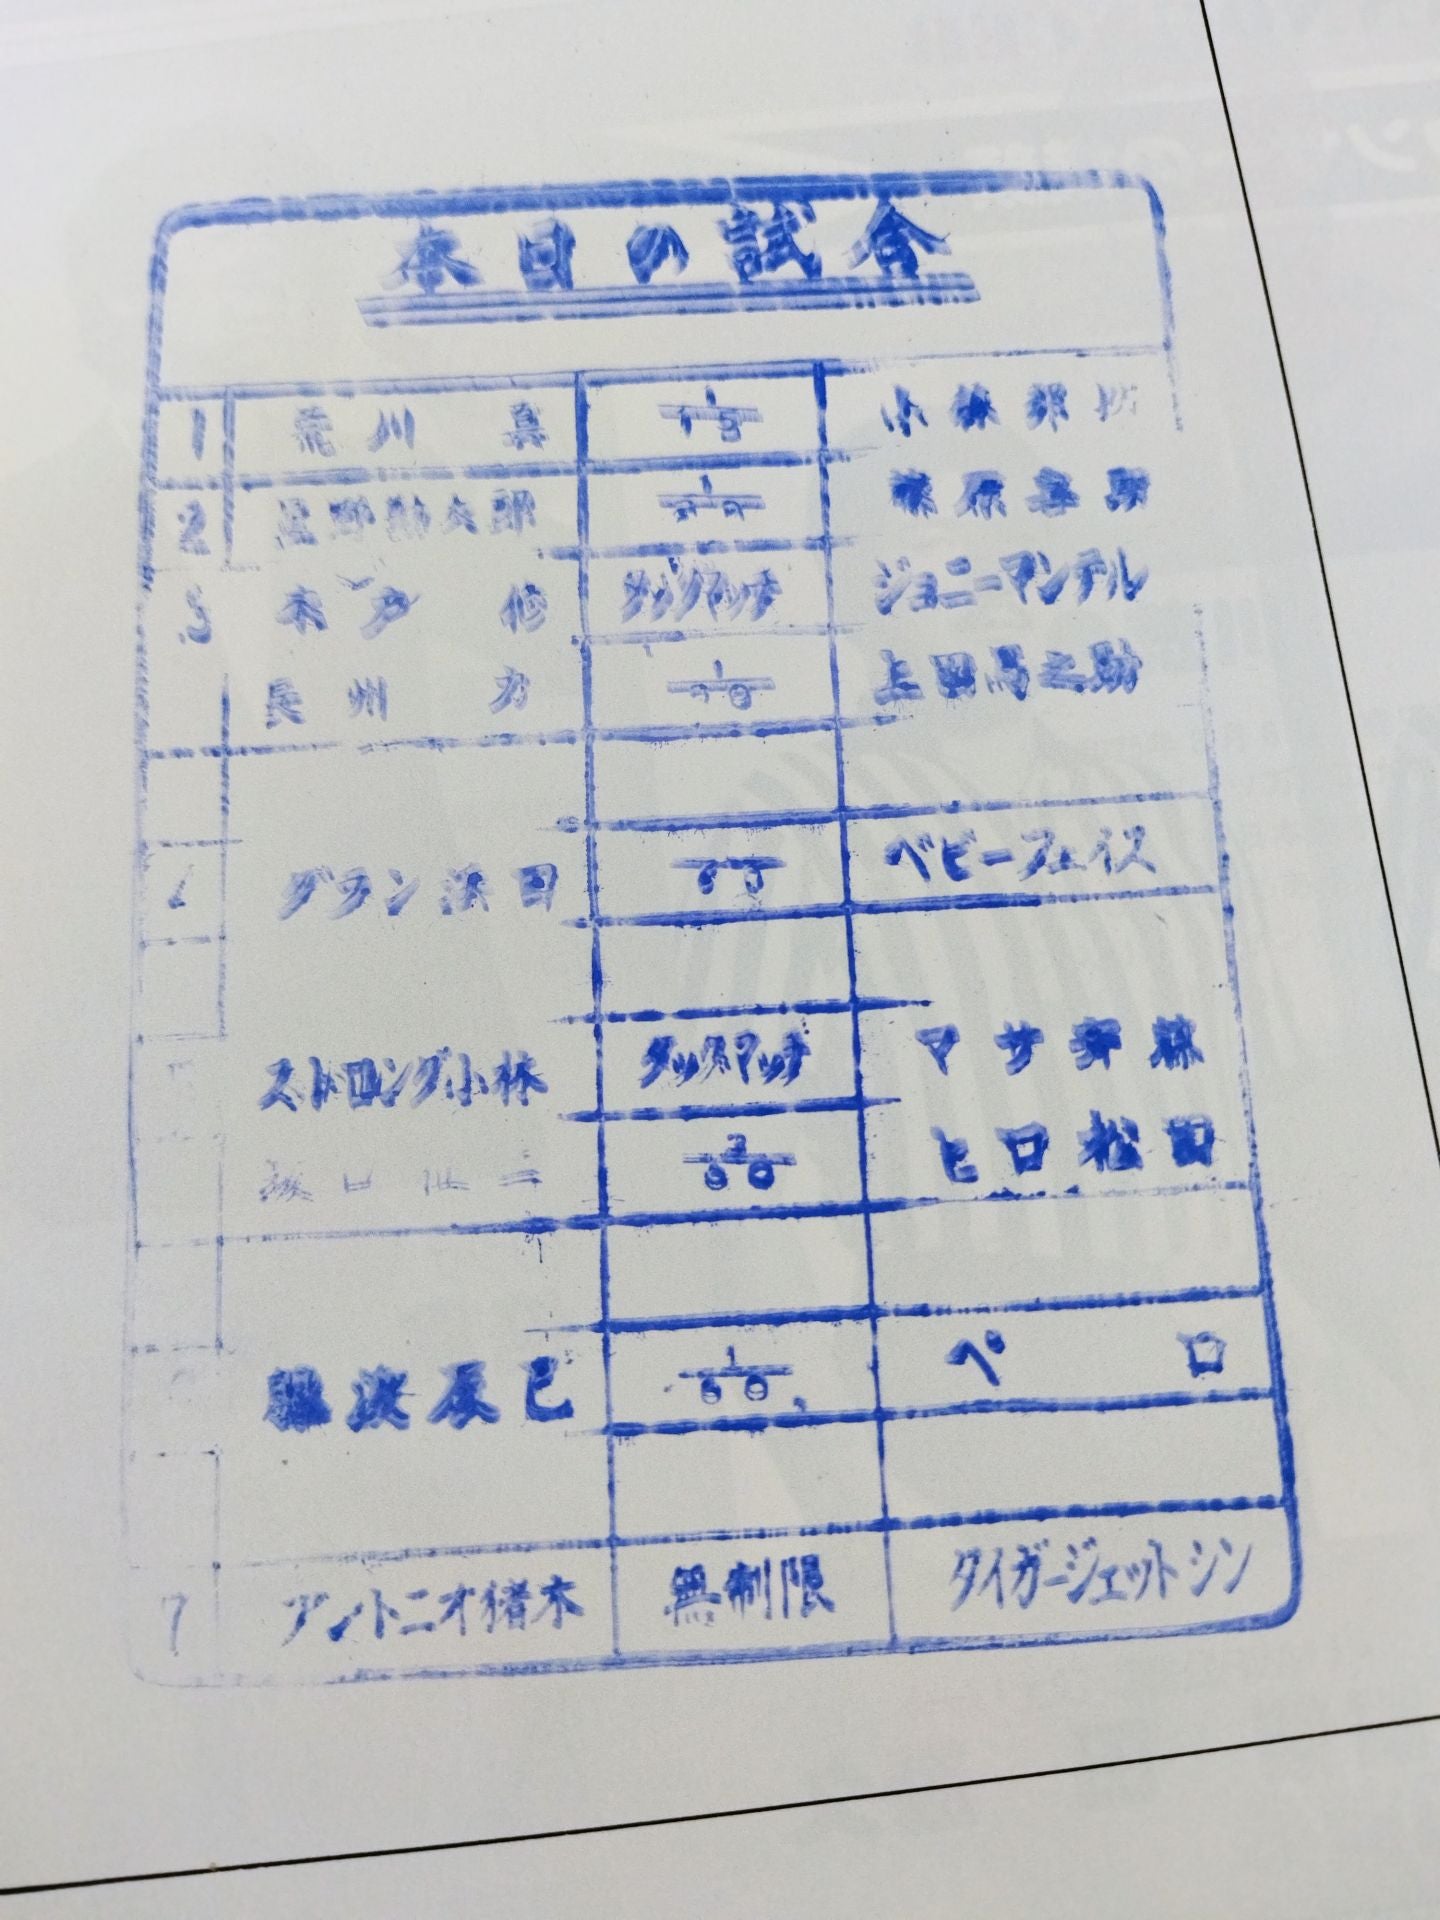 本日の試合
1 荒川真 1/15 小林邦昭
2 星野勘太郎 1/20 藤原喜明
3 木戸修 タッグマッチ ジョニーマンテル
長州力 1/20 上田馬之助
グラン浜田 ベビーフェイス
ストロング小林 タッグマッチ マサ斉藤
坂口征二 ヒロ松田
藤波辰巳 1/60 ペロ
7 アントニオ猪木 無制限 タイガージェットシン